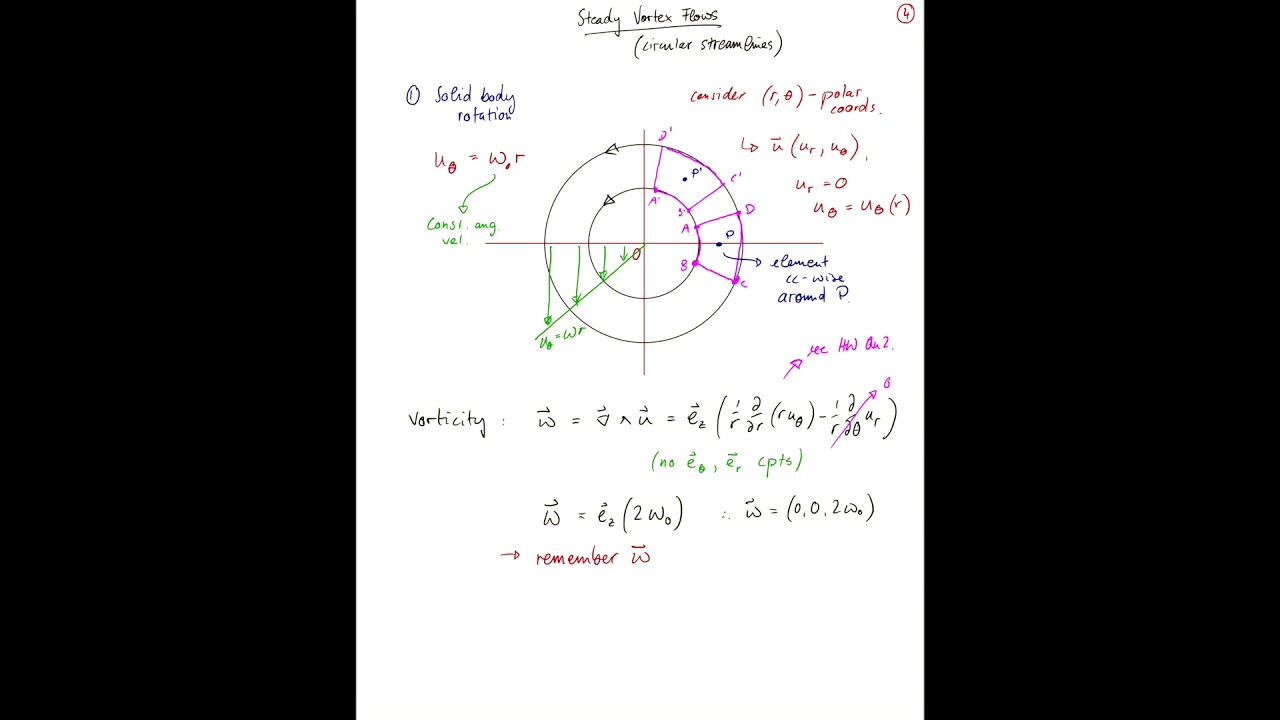 Steady Vortex Flows
④
(circular streamlines)
① Solid body
rotation
consider (r, θ) - polar
coords.
↳ u⃗ (u_r, u_θ),
u_θ = ω₀ r
u_r = 0
u_θ = u_θ(r)
Const. ang.
vel.
D'
P'
C'
A'
B'
A
D
P
B
C
O
→ element
cc-wise
around P.
u_θ = ωr
see HW Qu 2.
0
Vorticity : ω⃗ = ∇⃗ ∧ u⃗ = e⃗_z ( 1/r ∂/∂r (r u_θ) - 1/r ∂/∂θ u_r )
(no e⃗_θ, e⃗_r cpts)
ω⃗ = e⃗_z (2ω₀) ∴ ω⃗ = (0, 0, 2ω₀)
→ remember ω⃗